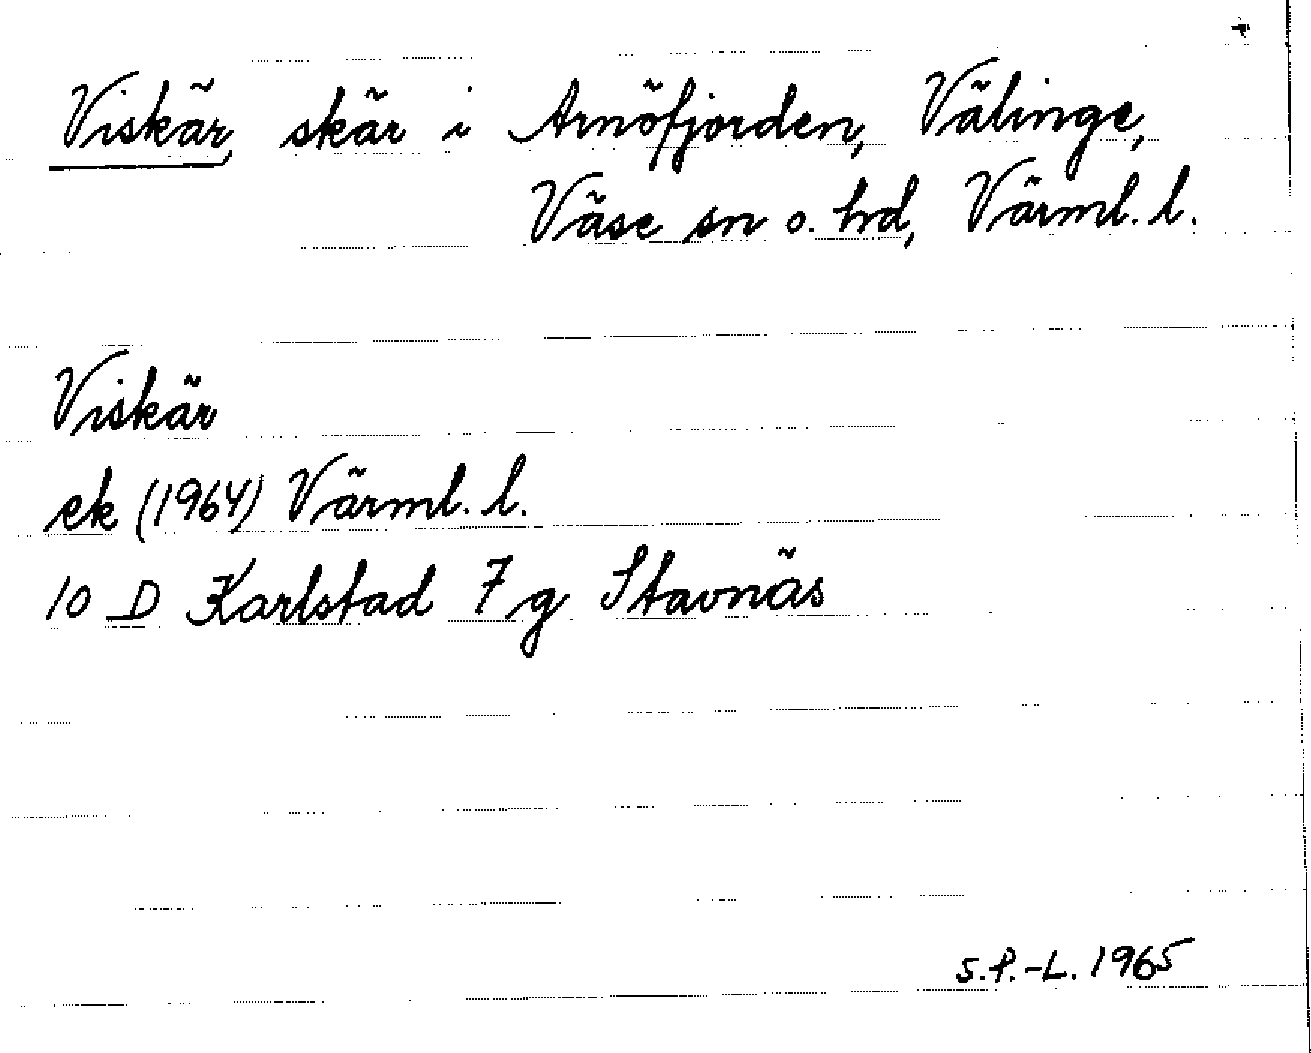 Viskär, skär i Arnöfjorden, Välinge,
Väse sn o. hd, Värml. l.
Viskär
ek (1964) Värml. l.
10 D Karlstad 7 g Stavnäs
S.P.-L. 1965